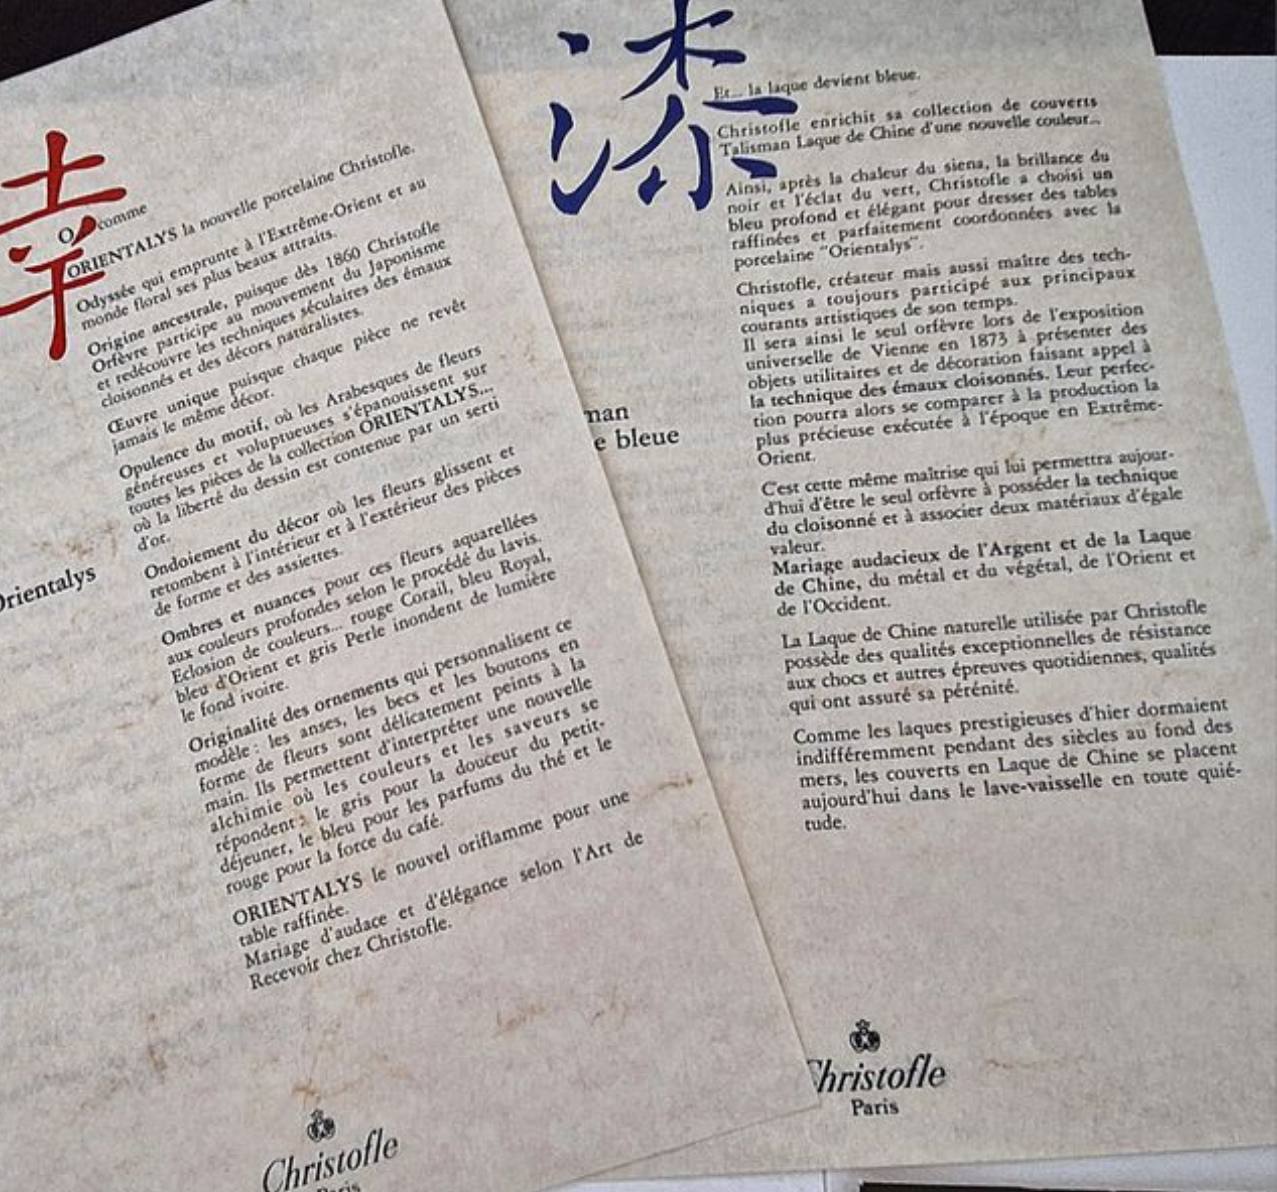 幸
O comme
ORIENTALYS la nouvelle porcelaine Christofle.
Odyssée qui emprunte à l'Extrême-Orient et au
monde floral ses plus beaux attraits.
Origine ancestrale, puisque dès 1860 Christofle
Orfèvre participe au mouvement du Japonisme
et redécouvre les techniques séculaires des émaux
cloisonnés et des décors naturalistes.
Œuvre unique puisque chaque pièce ne revêt
jamais le même décor.
Opulence du motif, où les Arabesques de fleurs
généreuses et voluptueuses s'épanouissent sur
toutes les pièces de la collection ORIENTALYS...
où la liberté du dessin est contenue par un serti
d'or.
Ondoiement du décor où les fleurs glissent et
retombent à l'intérieur et à l'extérieur des pièces
de forme et des assiettes.
Ombres et nuances pour ces fleurs aquarellées
aux couleurs profondes selon le procédé du lavis.
Eclosion de couleurs... rouge Corail, bleu Royal,
bleu d'Orient et gris Perle inondent de lumière
le fond ivoire.
Originalité des ornements qui personnalisent ce
modèle : les anses, les becs et les boutons en
forme de fleurs sont délicatement peints à la
main. Ils permettent d'interpréter une nouvelle
alchimie où les couleurs et les saveurs se
répondent : le gris pour la douceur du petit-
déjeuner, le bleu pour les parfums du thé et le
rouge pour la force du café.
ORIENTALYS le nouvel oriflamme pour une
table raffinée.
Mariage d'audace et d'élégance selon l'Art de
Recevoir chez Christofle.
Orientalys
Christofle
Paris
漆
Et... la laque devient bleue.
Christofle enrichit sa collection de couverts
Talisman Laque de Chine d'une nouvelle couleur...
Ainsi, après la chaleur du siena, la brillance du
noir et l'éclat du vert, Christofle a choisi un
bleu profond et élégant pour dresser des tables
raffinées et parfaitement coordonnées avec la
porcelaine "Orientalys".
Christofle, créateur mais aussi maître des tech-
niques a toujours participé aux principaux
courants artistiques de son temps.
Il sera ainsi le seul orfèvre lors de l'exposition
universelle de Vienne en 1873 à présenter des
objets utilitaires et de décoration faisant appel à
la technique des émaux cloisonnés. Leur perfec-
tion pourra alors se comparer à la production la
plus précieuse exécutée à l'époque en Extrême-
Orient.
C'est cette même maîtrise qui lui permettra aujour-
d'hui d'être le seul orfèvre à posséder la technique
du cloisonné et à associer deux matériaux d'égale
valeur.
Mariage audacieux de l'Argent et de la Laque
de Chine, du métal et du végétal, de l'Orient et
de l'Occident.
La Laque de Chine naturelle utilisée par Christofle
possède des qualités exceptionnelles de résistance
aux chocs et autres épreuves quotidiennes, qualités
qui ont assuré sa pérénité.
Comme les laques prestigieuses d'hier dormaient
indifféremment pendant des siècles au fond des
mers, les couverts en Laque de Chine se placent
aujourd'hui dans le lave-vaisselle en toute quié-
tude.
man
e bleue
Christofle
Paris